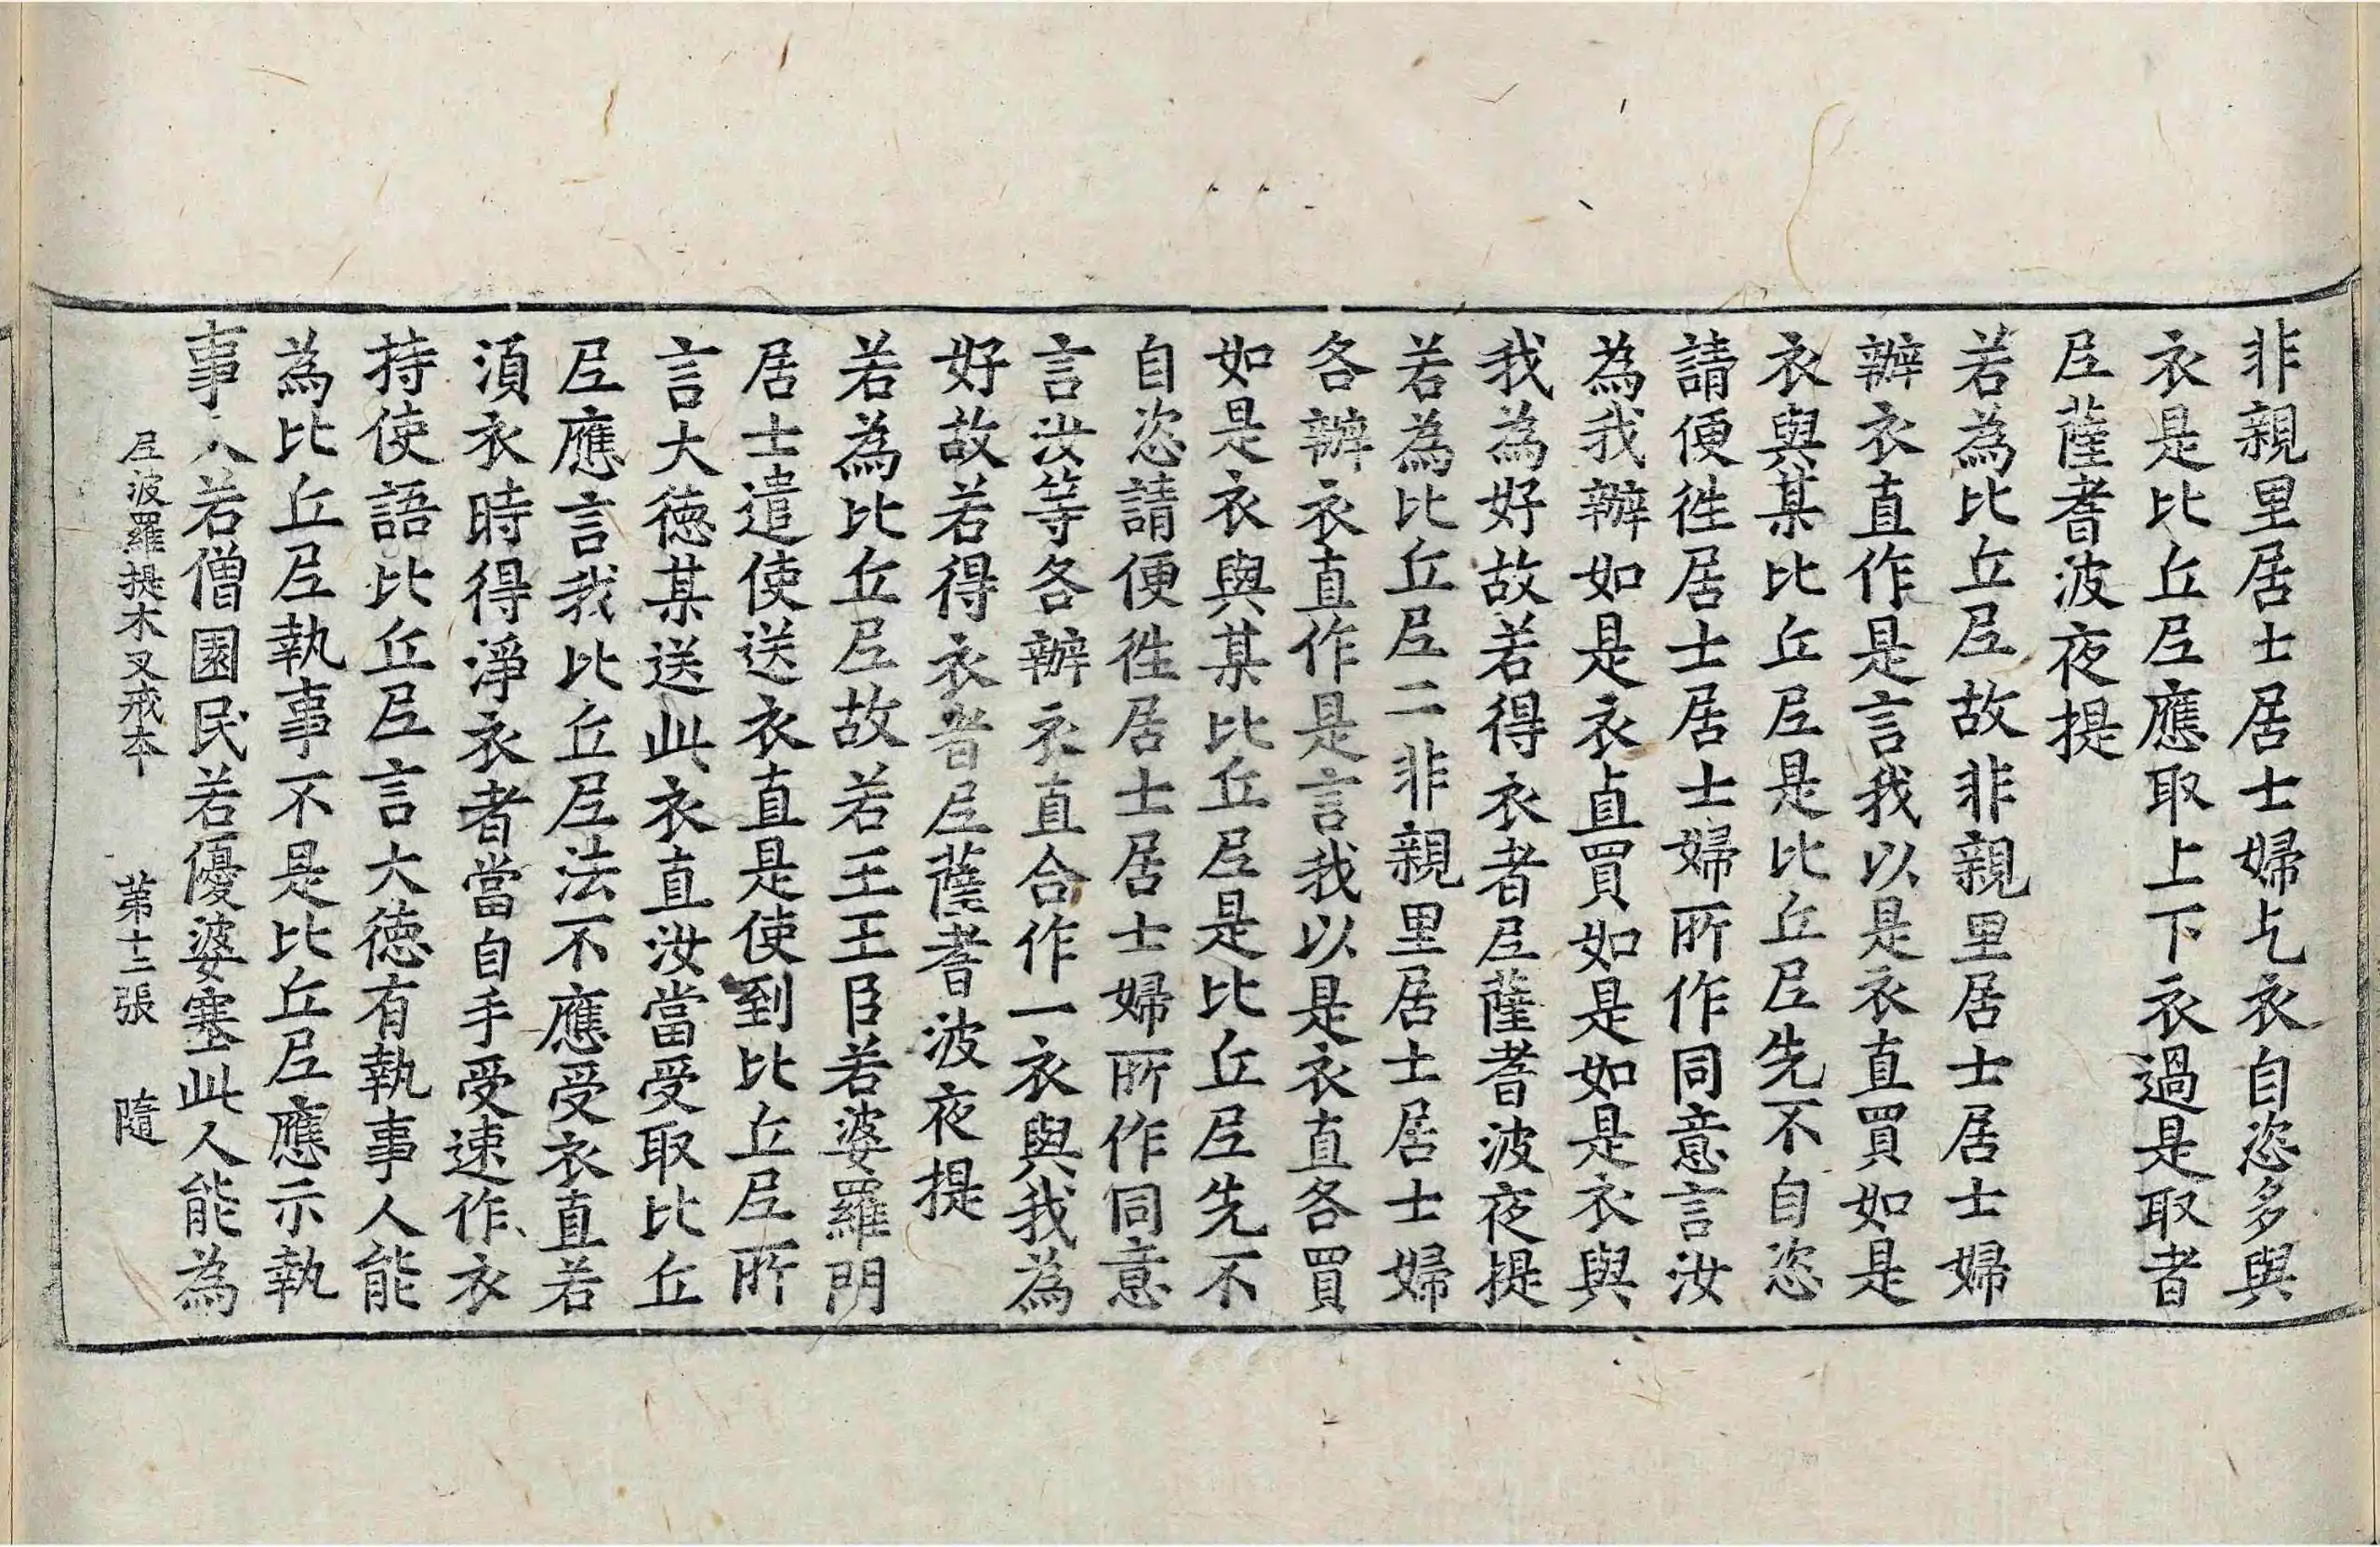 非親里居士居士婦乞衣自恣多與
衣是比丘尼應取上下衣過是取者
尼薩耆波夜提
若為比丘尼故非親里居士居士婦
辦衣直作是言我以是衣直買如是
衣與某比丘尼是比丘尼先不自恣
請便徃居士居士婦所作同意言汝
為我辦如是衣直買如是如是衣與
我為好故若得衣者尼薩耆波夜提
若為比丘尼二非親里居士居士婦
各辦衣直作是言我以是衣直各買
如是衣與某比丘尼是比丘尼先不
自恣請便徃居士居士婦所作同意
言汝等各辦衣直合作一衣與我為
好故若得衣者尼薩耆波夜提
若為比丘尼故若王王臣若婆羅門
居士遣使送衣直是使到比丘尼所
言大德某送此衣直汝當受取比丘
尼應言我比丘尼法不應受衣直若
湏衣時得淨衣者當自手受速作衣
持使語比丘尼言大德有執事人能
為比丘尼執事不是比丘尼應示執
事人若僧園民若優婆塞此人能為
尼波羅提木叉戒本 苐十二張 隨